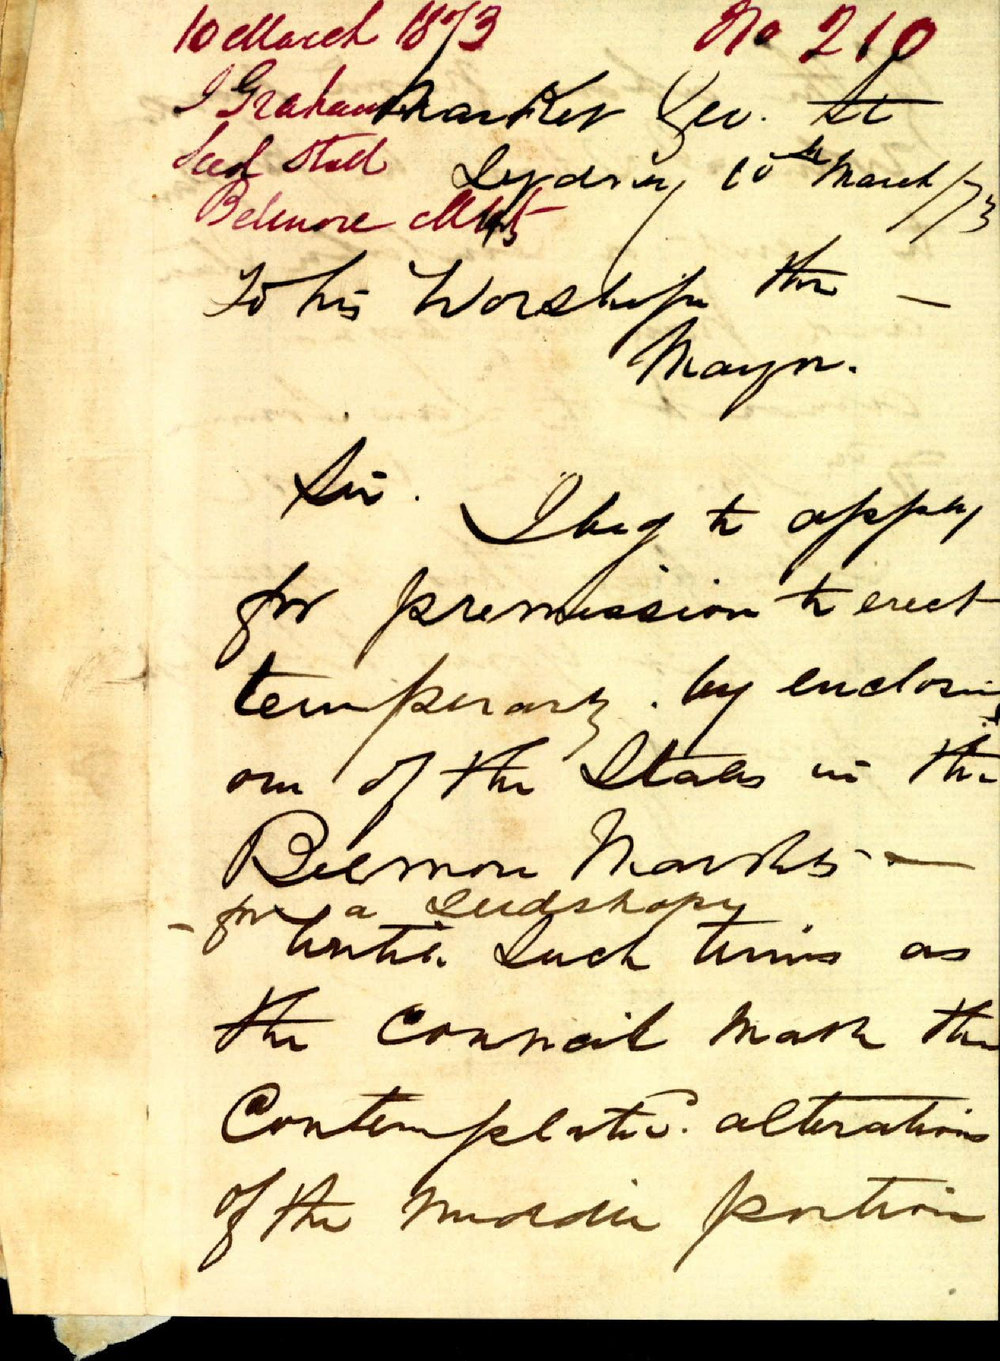 10 March 1873 No 210
J Graham
Seed Stall
Belmore Mkts
Market Geo. St
Sydney 10th March/73
To his Worship the —
Mayor.
Sir. I beg to apply
for premission to erect
temporary. by enclosing
one of the Stalls in the
Belmore Markets —
- for a Seedshop
until Such times as
the Council make the
Contemplated. alterations
of the Middle portion